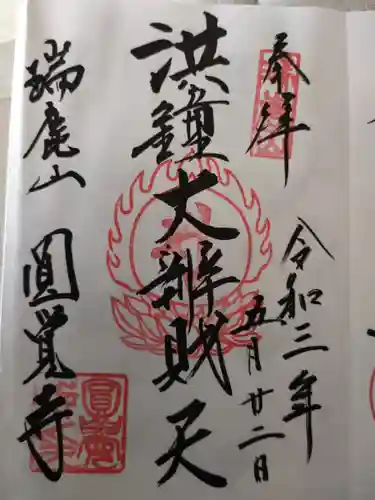 奉拝
令和三年
五月廿二日
洪鐘大辨財天
瑞鹿山 圓覚寺